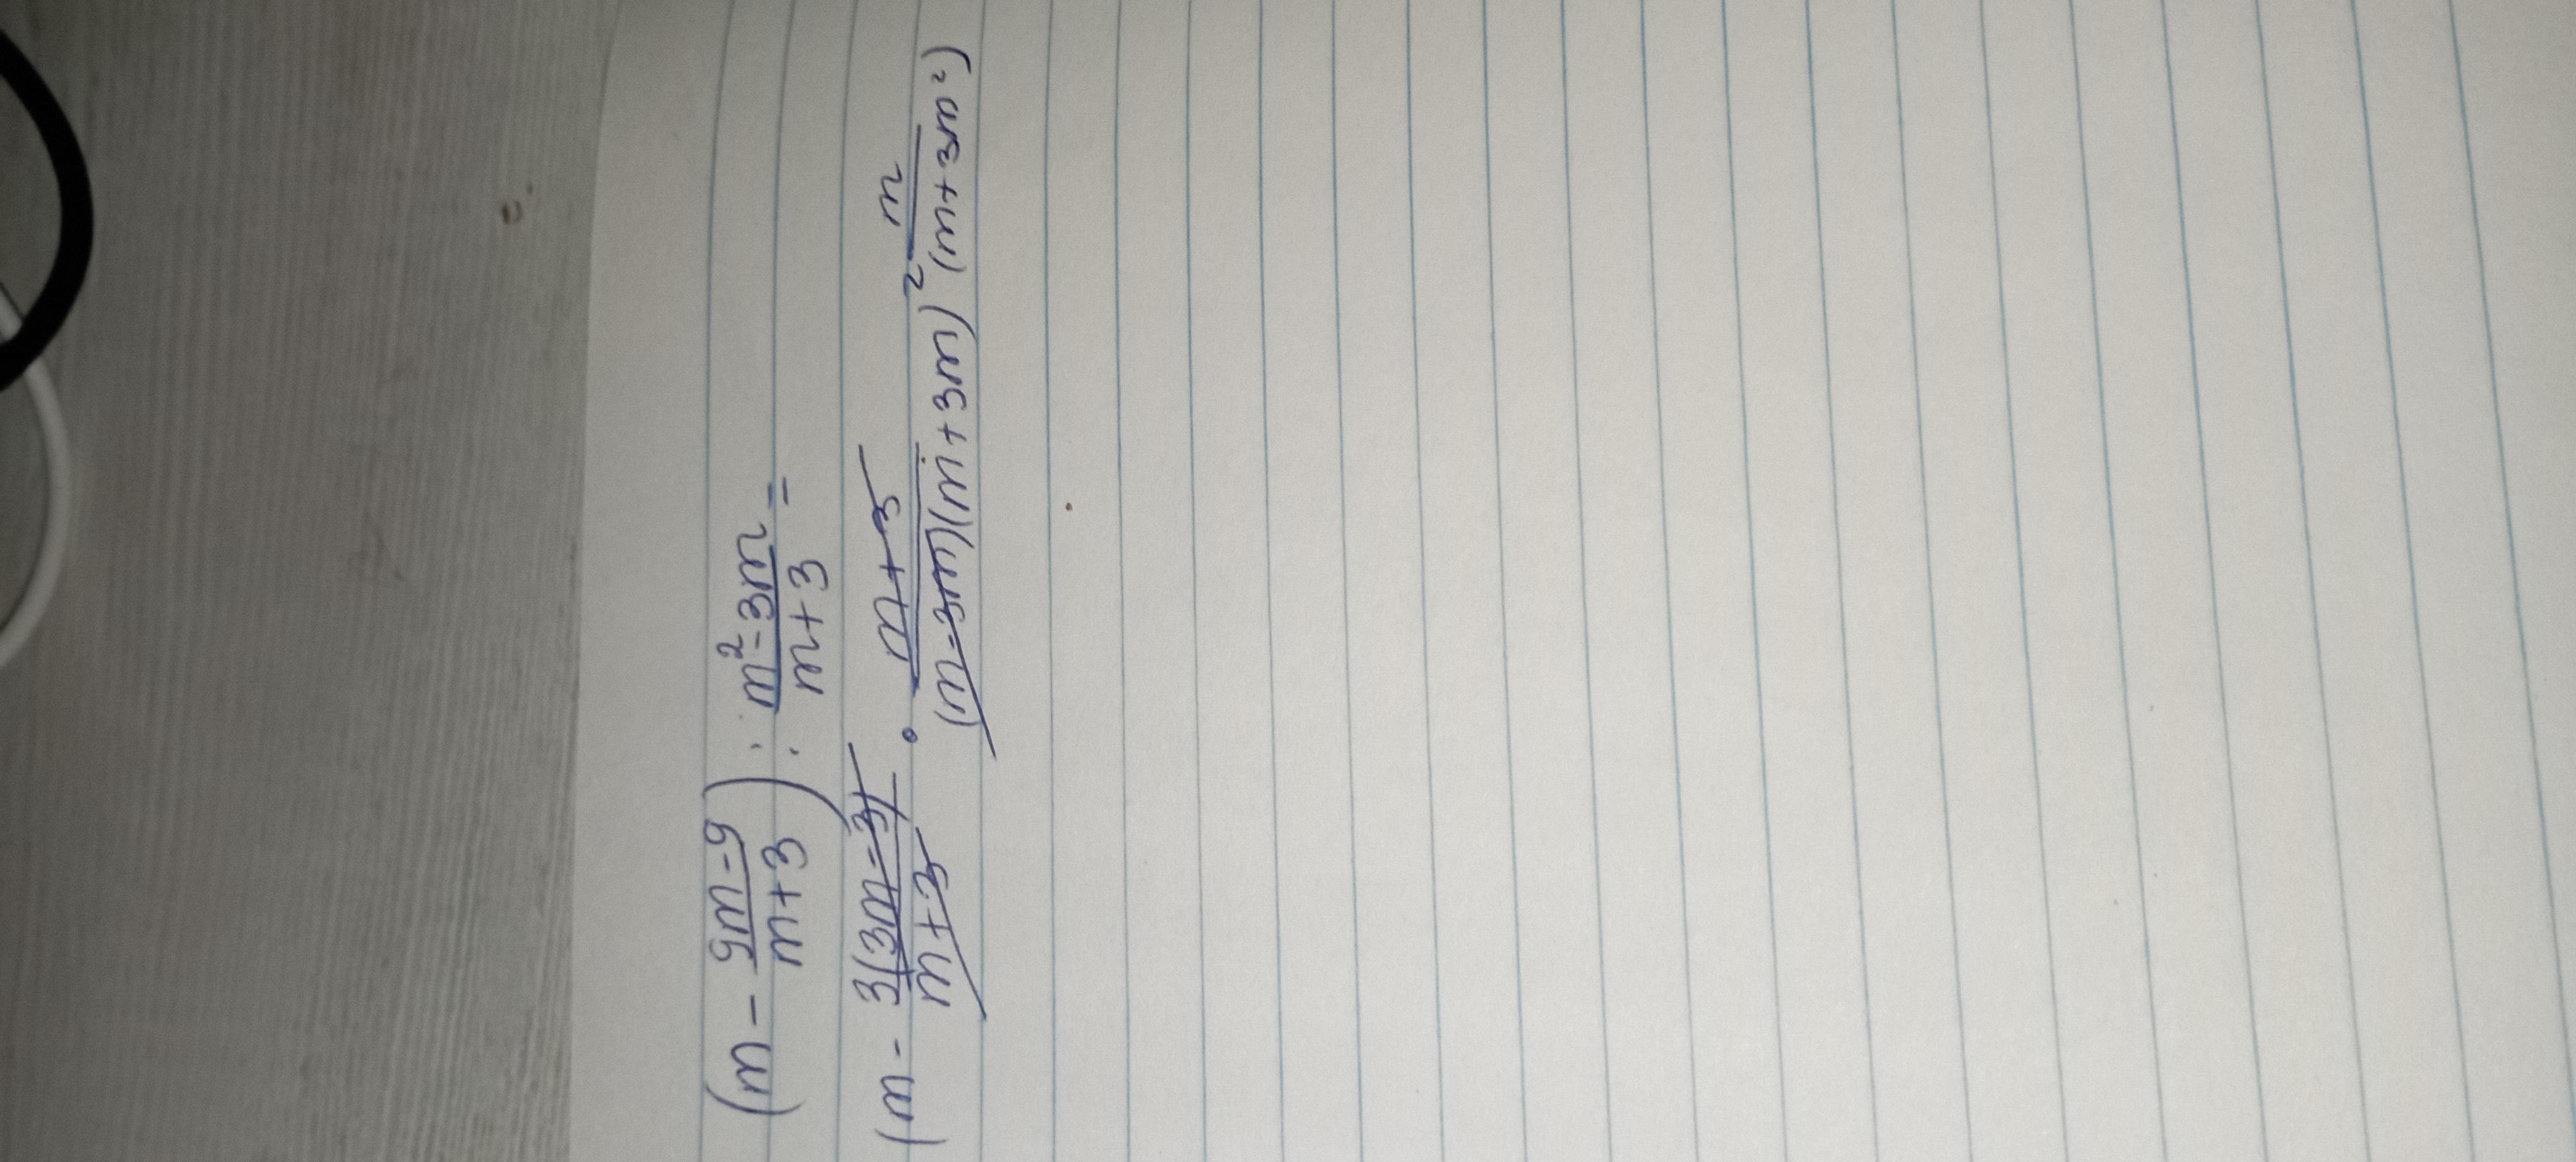 (m - 9m-9/m+3) : m²-3m/m+3 =
(m - 3(3m-3)/m+3 · m+3/(m-3m)(m+3m)² m/(m+3m²)